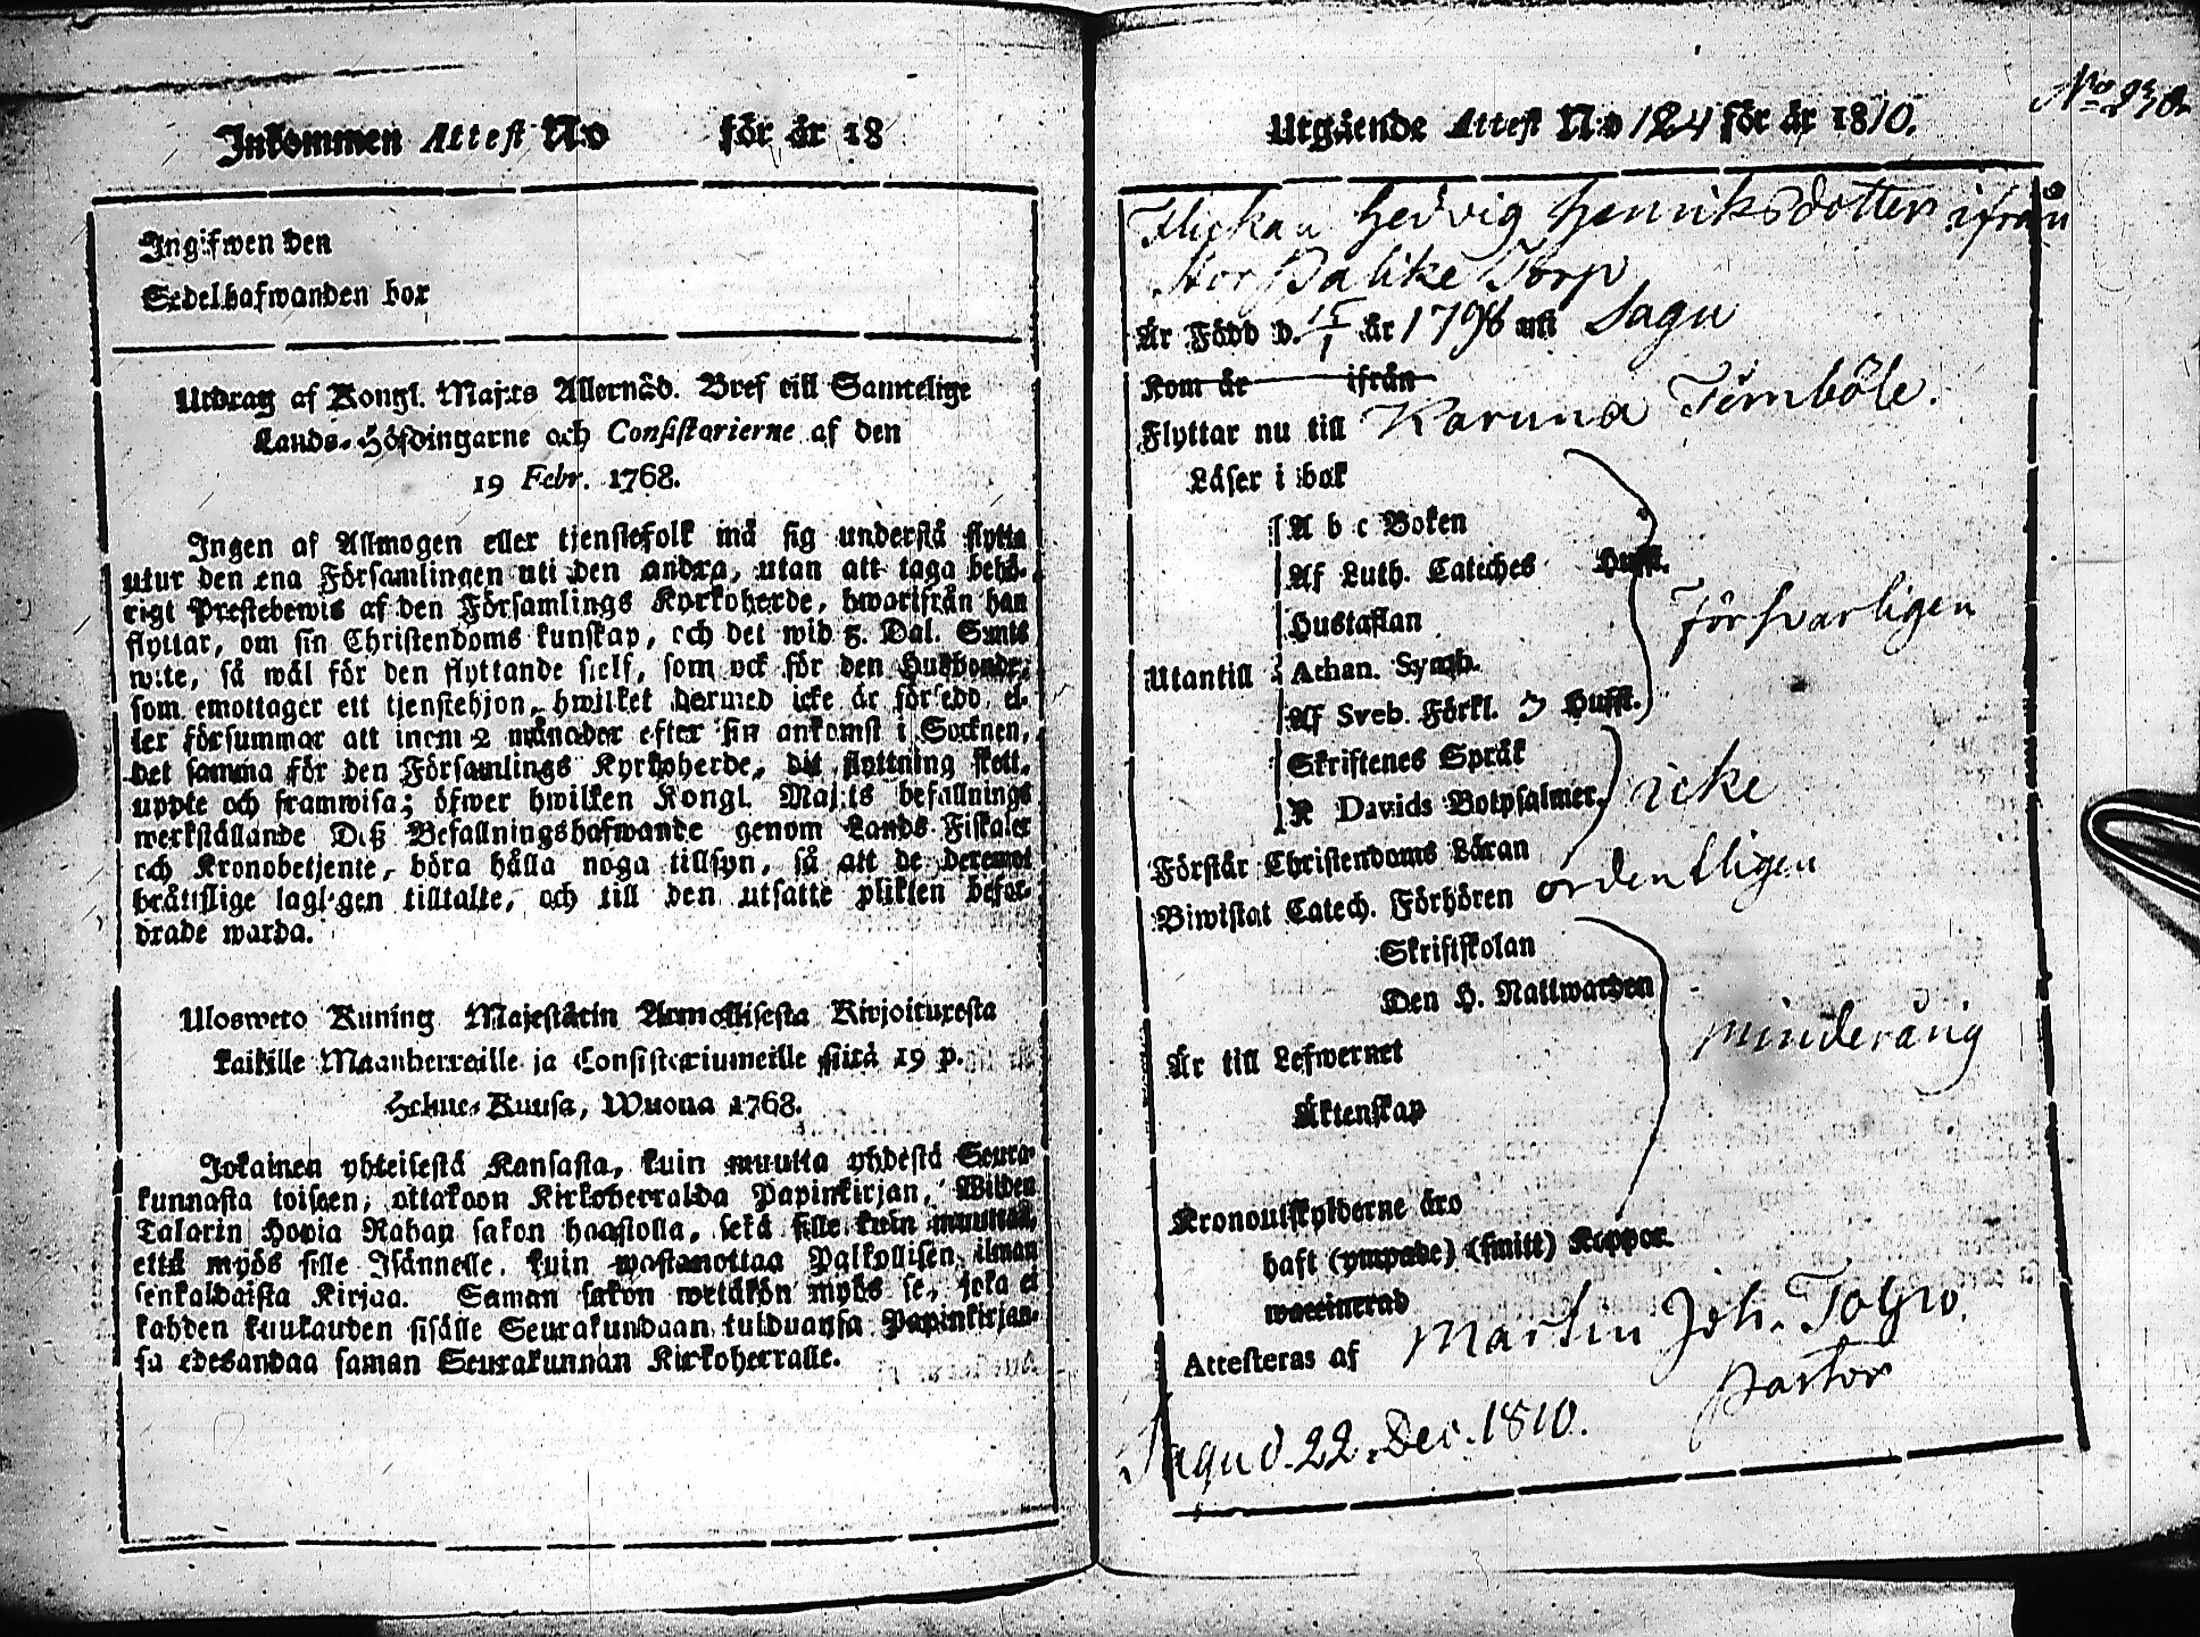 Inkommen Attest N:o för år 18
Ingifwen den
Sedelhafwanden bor
Utdrag af Kongl. Maj:ts Allernåd. Bref till Samtelige
Lands-Höfdingarne och Consistorierne af den
19 Febr. 1768.
Ingen af Allmogen eller tjenstefolk må sig understå flytta
utur den ena Församlingen uti den andra, utan att taga behö-
rigt Prestebewis af den Församlings Kyrkoherde, hwarifrån han
flyttar, om sin Christendoms kunskap, och det wid 5. Dal. S:mts
wite, så wäl för den flyttande sielf, som ock för den Husbonde,
som emottager ett tjenstehjon, hwilket dermed icke är försedd, el-
ler försummar att inom 2 månader efter sin ankomst i Socknen,
det samma för den Församlings Kyrkoherde, dit flyttning skett,
uppte och framwisa; öfwer hwilken Kongl. Maj:ts befallnings
werkställande Deß Befallningshafwande genom Lands-Fiskaler
och Kronobetjente, böra hålla noga tillsyn, så att de deremot
bråttslige lagligen tilltalte, och till den utsatte plikten befor-
drade warda.
Ulosweto Kuning Majestätin Armollisesta Kirjoituxesta
kaikille Maanherraille ja Consistoriumeille siitä 19 p.
Helme-Kuusa, Wuona 1768.
Jokainen yhteisestä Kansasta, kuin muutta yhdestä Seura-
kunnasta toiseen, ottakoon Kirkoherralda Papinkirjan, Wiiden
Talarin Hopia Rahan sakon haastolla, sekä sille kuin muuttaa,
että myös sille Isännelle, kuin wastanottaa Palkollisen ilman
senkaldaista Kirjaa. Saman sakon wetäkön myös se, joka ei
kahden kuukauden sisälle Seurakundaan tulduansa Papinkirjan-
sa edesandaa saman Seurakunnan Kirkoherralle.
No 230.
Utgående Attest N:o 124 för år 1810.
Flickan Hedvig Henriksdotter ifrån
Stor Palike Torp
Är Född d. 15/1 år 1798 uti Sagu
Kom år ifrån
Flyttar nu till Karuna Timböle.
Läser i bok
A b c Boken
Af Luth. Cateches Hufft.
Hustaflan
Utantill Athan. Symb.
Af Sveb. Förkl. 3 Hufft.
Försvarligen
Skriftenes Språk
K Davids Botpsalmer. icke
Förstår Christendoms Läran
Biwistat Catech. Förhören ordentligen
Skriftskolan
Den H. Nattwarden
minderårig
Är till Lefwernet
Äktenskap
Kronoutskylderne äro
haft (ympade) (smitt) Koppor.
waccinerad
Attesteras af Martin Joh. Tolpo.
Pastor
Sagu d. 22. Dec. 1810.